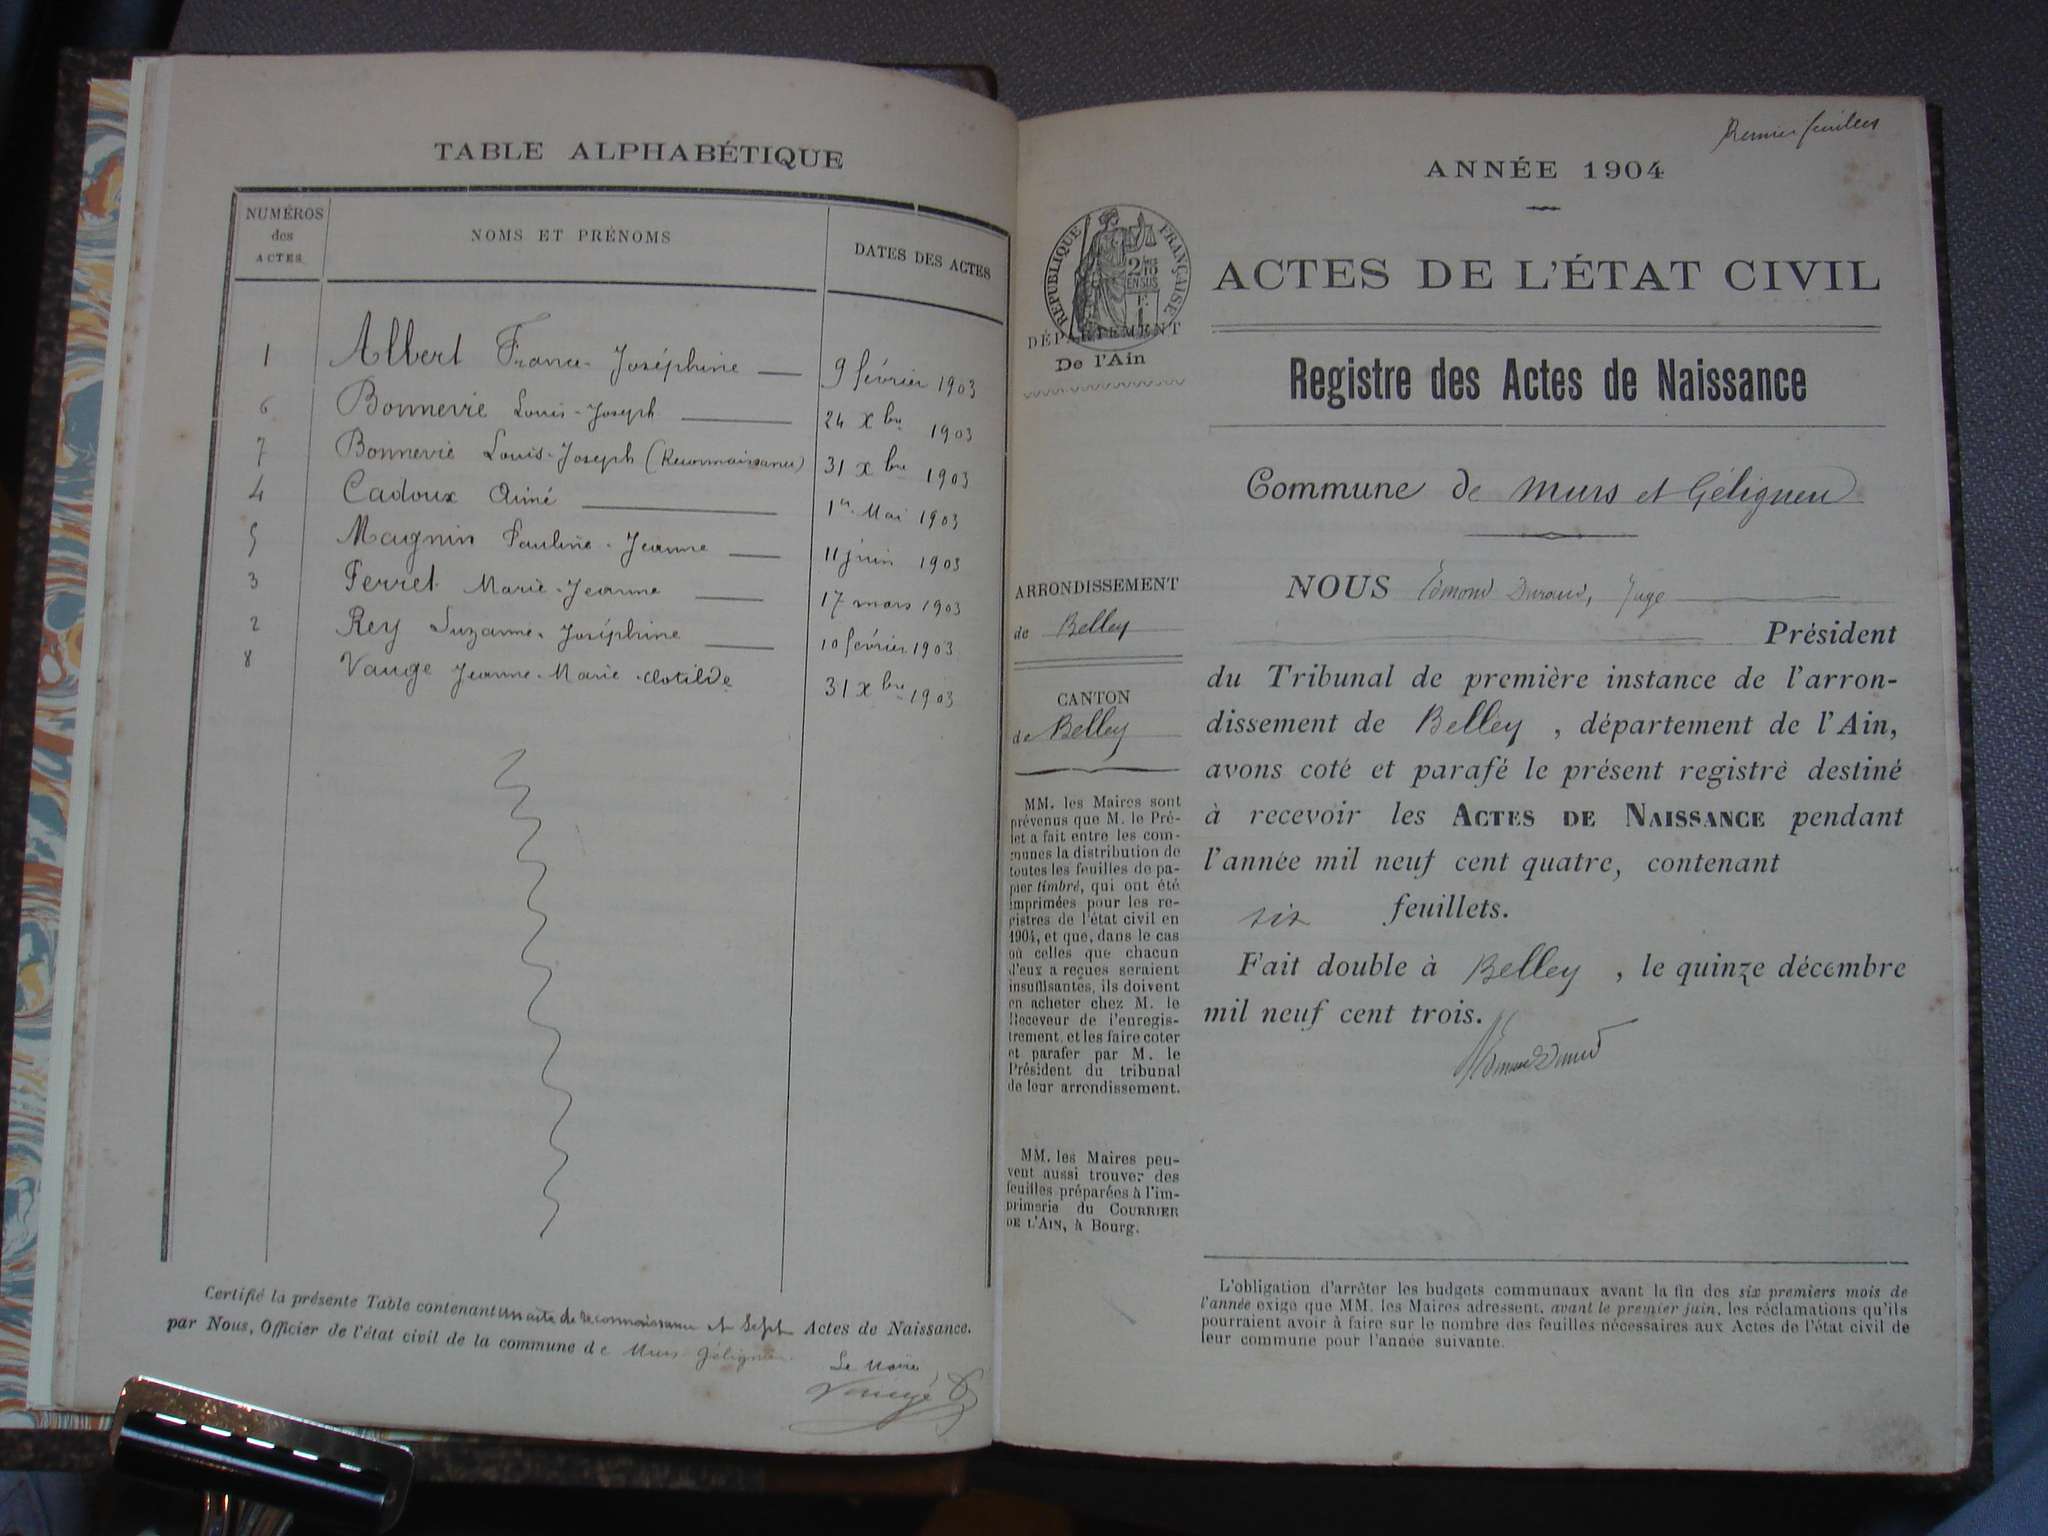 TABLE ALPHABÉTIQUE
NUMÉROS
des
ACTES
NOMS ET PRÉNOMS
DATES DES ACTES
1 Albert France-Joséphine 9 février 1903
6 Bonnevie Louis-Joseph 24 Xbre 1903
7 Bonnevie Louis-Joseph (Reconnaissance) 31 Xbre 1903
4 Cadoux Aimé 1er Mai 1903
5 Magnin Pauline-Jeanne 11 juin 1903
3 Perret Marie-Jeanne 17 mars 1903
2 Rey Suzanne-Joséphine 10 février 1903
8 Vauge Jeanne-Marie-Clotilde 31 Xbre 1903
Certifié la présente Table contenant un acte de reconnaissance et sept Actes de Naissance.
par Nous, Officier de l'état civil de la commune de Murs Gélignieu
Le Maire,
Premier feuillet
ANNÉE 1904
RÉPUBLIQUE FRANÇAISE
ACTES DE L'ÉTAT CIVIL
DÉPARTEMENT
De l'Ain
Registre des Actes de Naissance
Commune de Murs et Gélignieu
ARRONDISSEMENT
de Belley
CANTON
de Belley
MM. les Maires sont
prévenus que M. le Pré-
fet a fait entre les com-
munes la distribution de
toutes les feuilles de pa-
pier timbré, qui ont été
imprimées pour les re-
gistres de l'état civil en
1904, et que, dans le cas
où celles que chacun
d'eux a reçues seraient
insuffisantes, ils doivent
en acheter chez M. le
Receveur de l'enregis-
trement, et les faire coter
et parafer par M. le
Président du tribunal
de leur arrondissement.
MM. les Maires peu-
vent aussi trouver des
feuilles préparées à l'im-
primerie du COURRIER
DE L'AIN, à Bourg.
NOUS Edmond Durand, Juge
Président
du Tribunal de première instance de l'arron-
dissement de Belley, département de l'Ain,
avons coté et parafé le présent registre destiné
à recevoir les ACTES DE NAISSANCE pendant
l'année mil neuf cent quatre, contenant
six feuillets.
Fait double à Belley, le quinze décembre
mil neuf cent trois.
Edmond Durand
L'obligation d'arrêter les budgets communaux avant la fin des six premiers mois de
l'année exige que MM. les Maires adressent, avant le premier juin, les réclamations qu'ils
pourraient avoir à faire sur le nombre des feuilles nécessaires aux Actes de l'état civil de
leur commune pour l'année suivante.